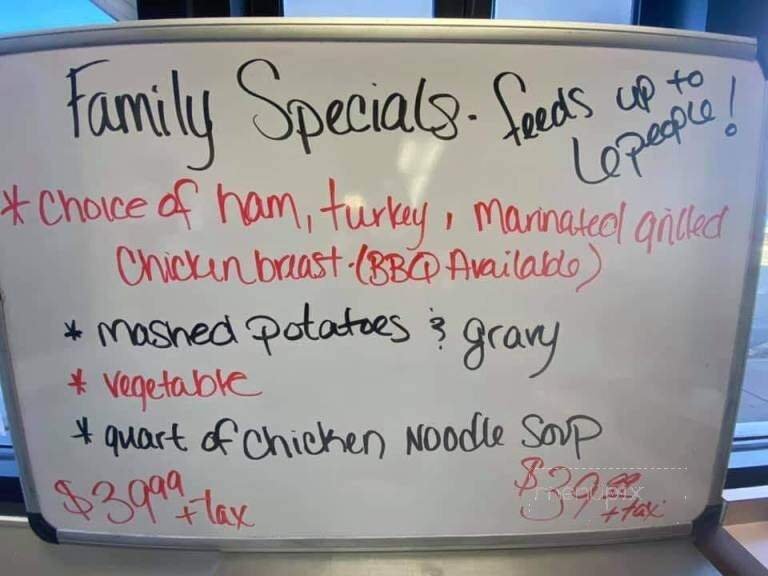 Family Specials. feeds up to
6 people!
* Choice of ham, turkey, Marinated grilled
Chicken breast. (BBQ Available)
* mashed potatoes & gravy
* vegetable
* quart of Chicken Noodle Soup
$39.99 + tax $39.99 + tax
menupix